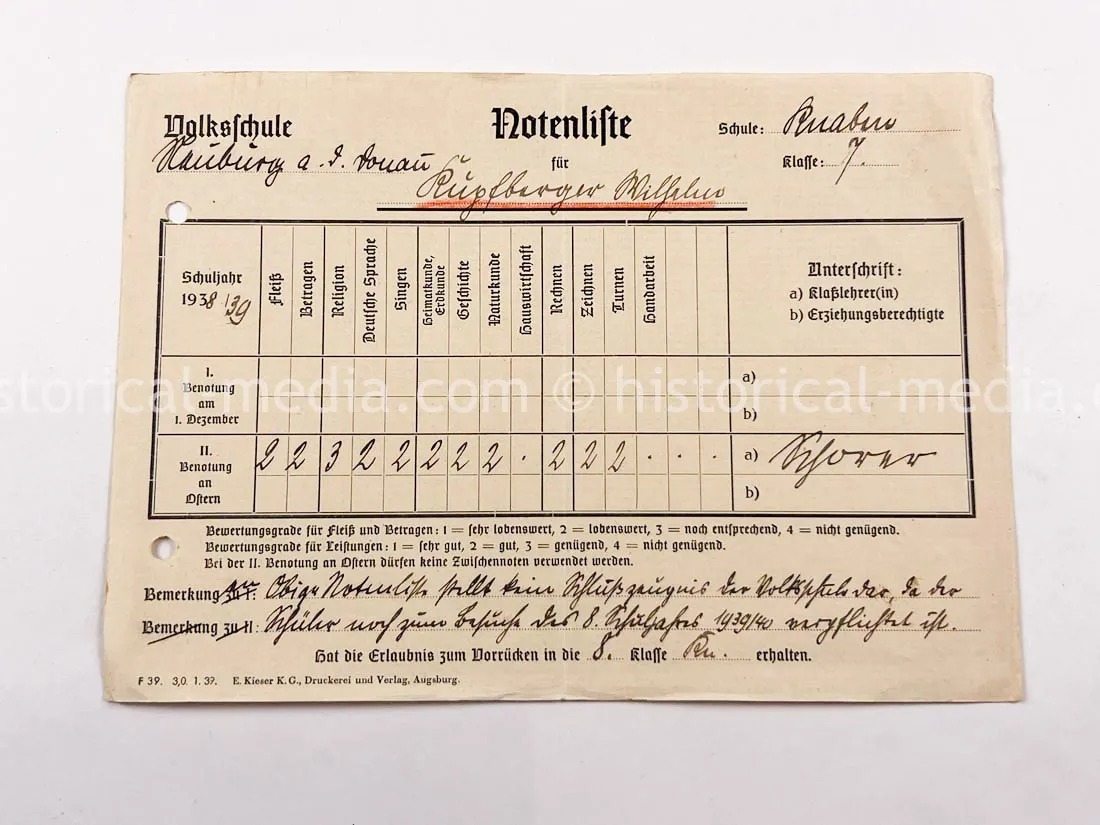 Volksschule
Notenliste
Schule: Knaben
Neuburg a. d. Donau
für
Klasse: 7.
Kupfberger Wilhelm
Schuljahr
1938/39
Fleiß
Betragen
Religion
Deutsche Sprache
Singen
Heimatkunde, Erdkunde
Geschichte
Naturkunde
Hauswirtschaft
Rechnen
Zeichnen
Turnen
Handarbeit
Unterschrift:
a) Klaßlehrer(in)
b) Erziehungsberechtigte
I.
Benotung
am
1. Dezember
a)
b)
historical-media.com © historical-media.c
II.
Benotung
an
Ostern
2 2 3 2 2 2 2 2 · 2 2 2 · · ·
a) Schorer
b)
Bewertungsgrade für Fleiß und Betragen: 1 = sehr lobenswert, 2 = lobenswert, 3 = noch entsprechend, 4 = nicht genügend.
Bewertungsgrade für Leistungen: 1 = sehr gut, 2 = gut, 3 = genügend, 4 = nicht genügend.
Bei der II. Benotung an Ostern dürfen keine Zwischennoten verwendet werden.
Bemerkung zu I: Obige Notenliste stellt kein Schlußzeugnis der Volksschule dar, da der
Bemerkung zu II: Schüler noch zum Besuche des 8. Schuljahres 1939/40 verpflichtet ist.
Hat die Erlaubnis zum Vorrücken in die 8. Klasse Kn. erhalten.
F 39. 3,0. 1. 39. E. Kieser K.G., Druckerei und Verlag, Augsburg.